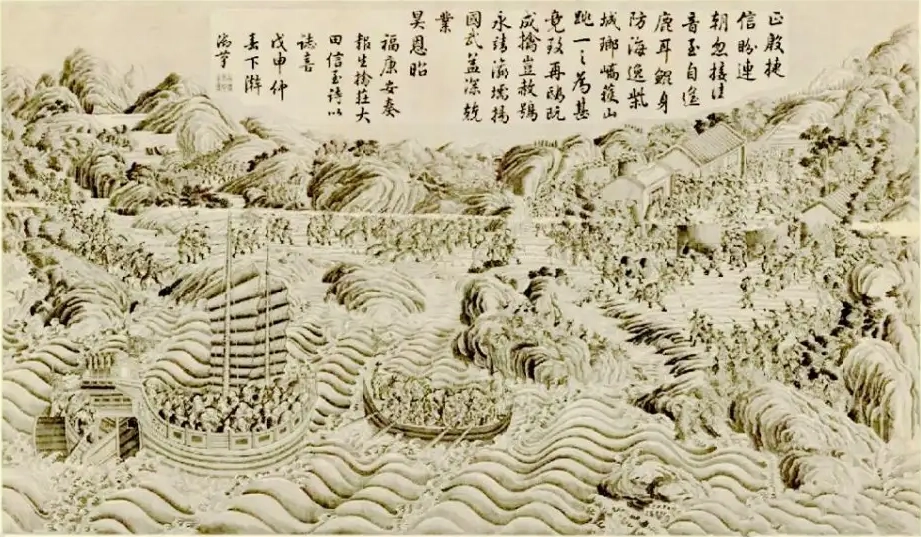 正殷捷
信盼連
朝忽接佳
音至自遥
鹿耳鯤身
防海逸柴
城瑯嶠獲山
跳一之為甚
竟致再鴟既
成擒豈赦鴞
永靖瀛壖揚
國武益深兢
業
昊恩昭
福康安奏
報生擒莊大
田信至詩以
誌喜
戊申仲
春下澣
御筆